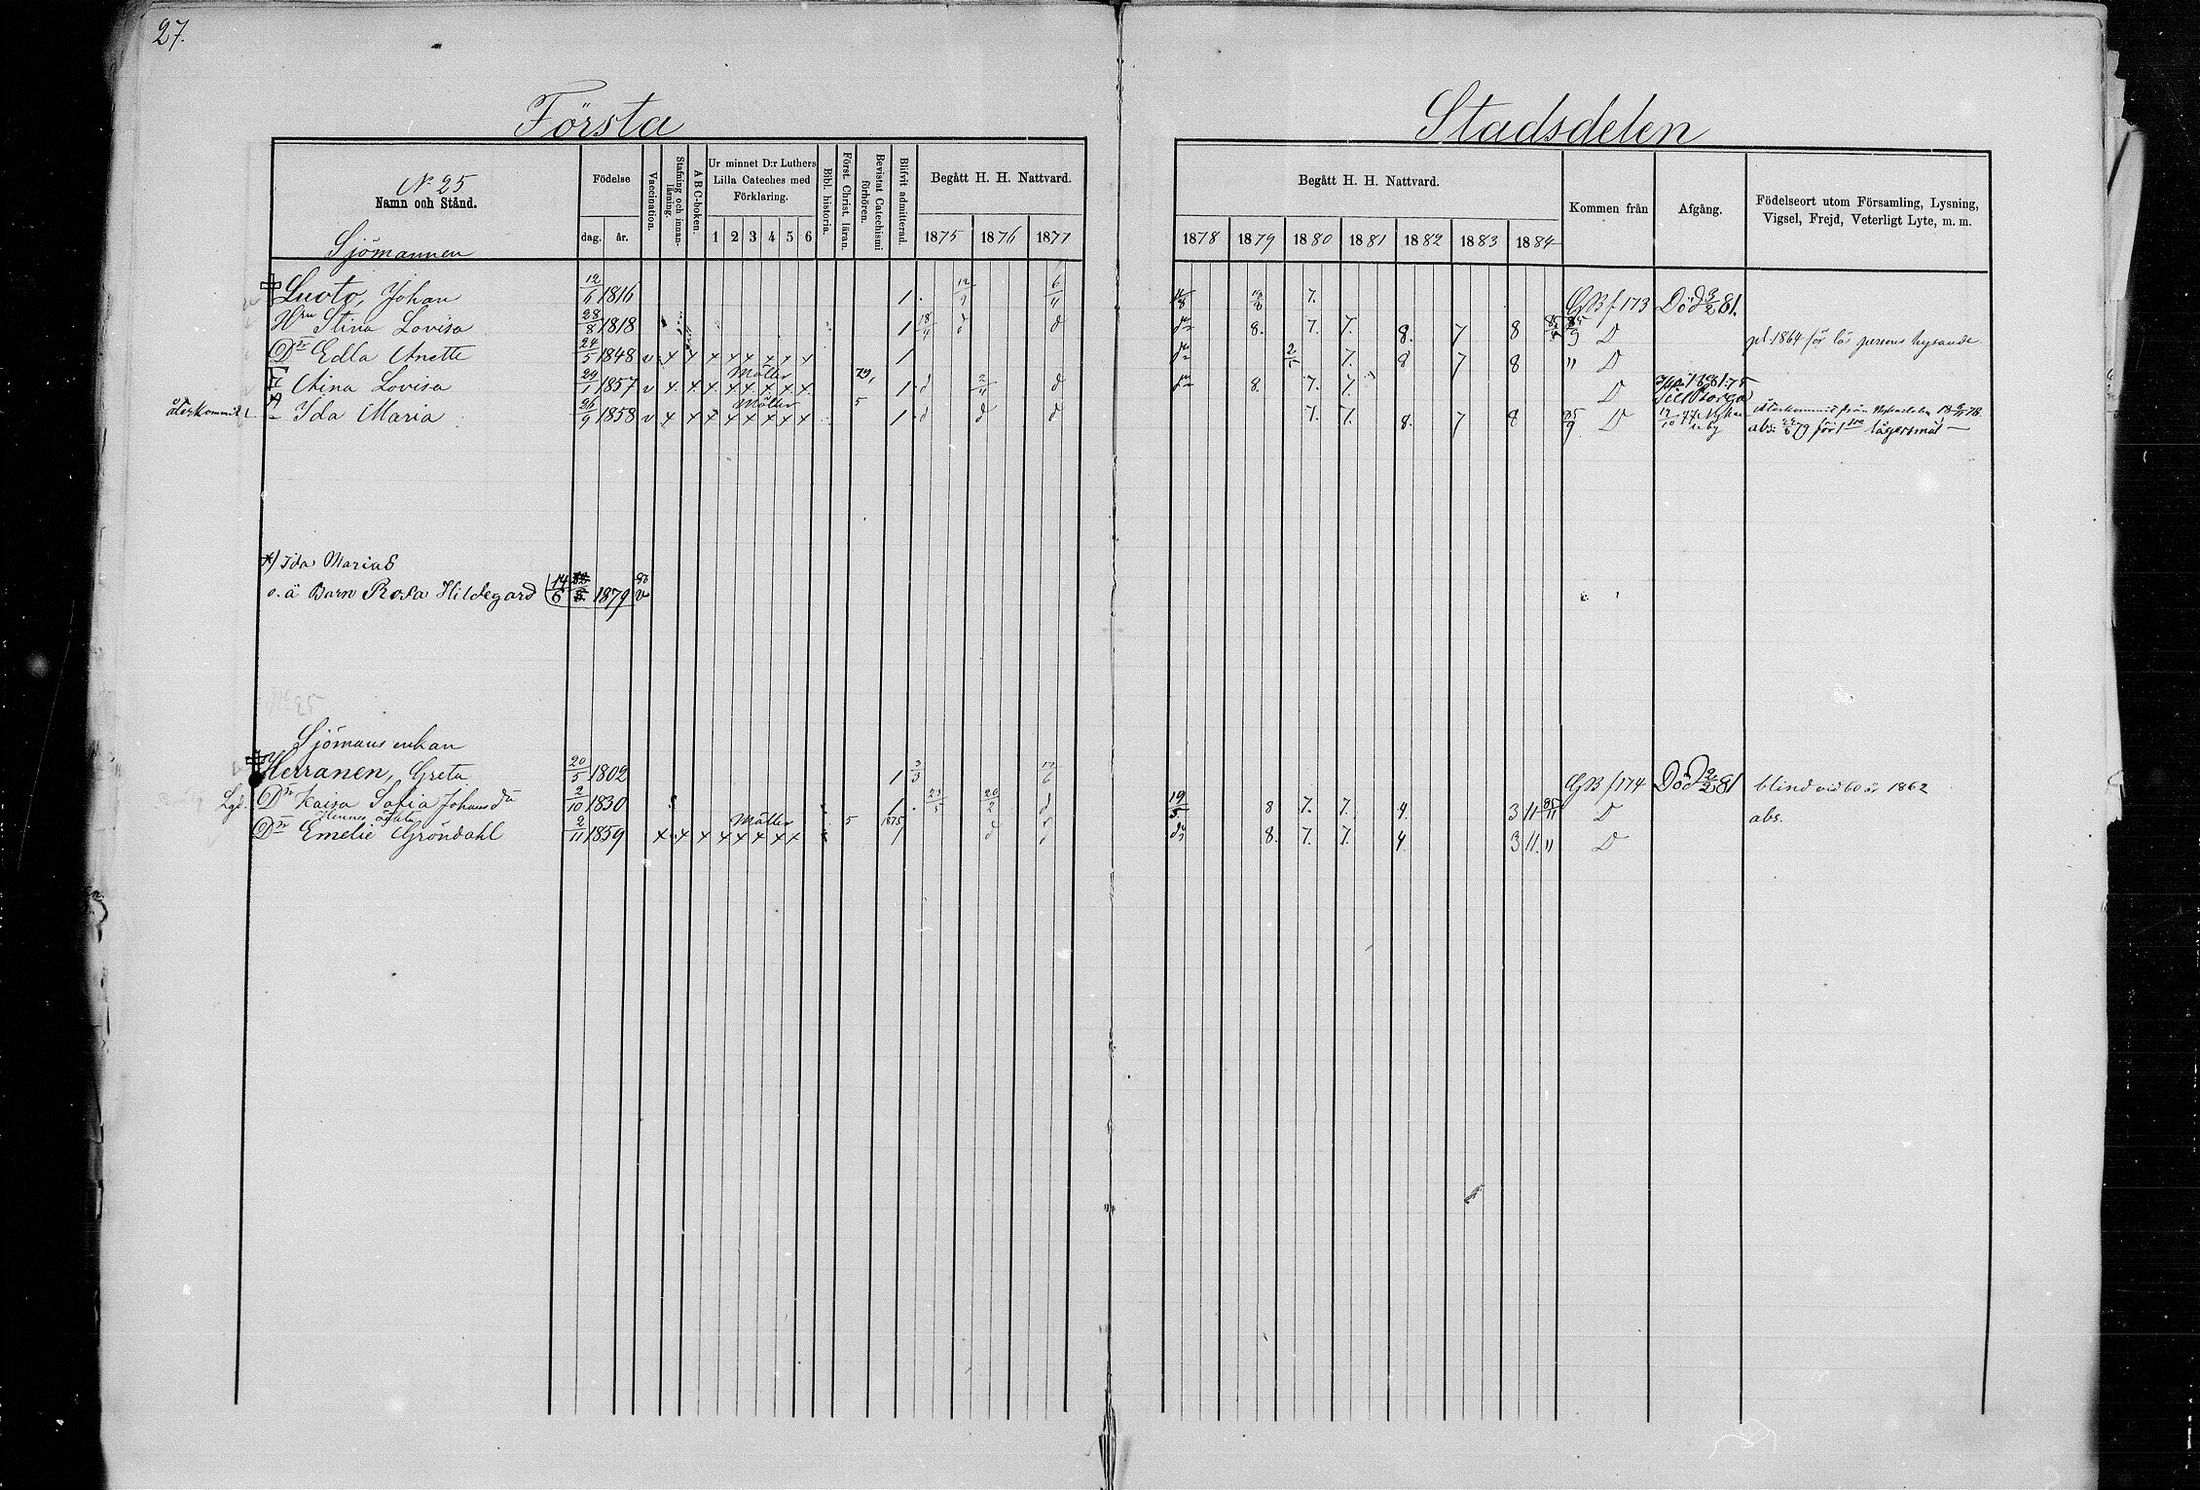 27.
Första
Stadsdelen
N:o 25
Namn och Stånd.
Födelse
dag. år.
Vaccination.
Stafning och innanläsning.
ABC-boken.
Ur minnet D:r Luthers Lilla Cateches med Förklaring.
1 2 3 4 5 6
Bibl. historia.
Först. Christ. läran.
Bevistat Catechismi förhören.
Blifvit admitterad.
Begått H. H. Nattvard.
1875 1876 1877
Begått H. H. Nattvard.
1878 1879 1880 1881 1882 1883 1884
Kommen från
Afgång.
Födelseort utom Församling, Lysning, Vigsel, Frejd, Veterligt Lyte, m. m.
Sjömannen
Luoto, Johan 12/6 1816 1. 6/11 7. GB f 173 Död 9/2 81.
Hru Stina Lovisa 28/8 1818 1 18/4 d d 8. 7. 7. 8. 7 8 D pl. 1864 för lös persons hysande
Dr Edla Anette 24/5 1848 v x x x x x x x x 1 7. 8 7 8 " D
Möller
Aina Lovisa 29/1 1857 v x x x x x x x x 79, 1. d 2/11 d 8. 7. 7. D till Borgå
Möller
återkommit Ida Maria 26/9 1858 v x x x x x x x x 5 1. d d d 7. 7. 8. 7 8 85/9 D 12/10 77 återkommit från 18 78
abs. 79 för 1sta lägersmål
x) Ida Marias
o. ä Barn Rosa Hildegard 14/6 1879 v
Sjömans enkan
Herranen, Greta 20/5 1802 1 3/3 GB f 174 Död 2/2 81 blind vid 60 år 1862
Lgd. Dr Kaisa Sofia Johansdr 2/10 1830 1. 23/5 20/2 d 19/5 8 7. 7. 4. 3 11 85/11 D abs.
Hennes oäkta
Möller
Dr Emelie Gröndahl 2/11 1859 x x x x x x x x 5 1875 1 d 8. 7. 7. 4. 3 11. " D